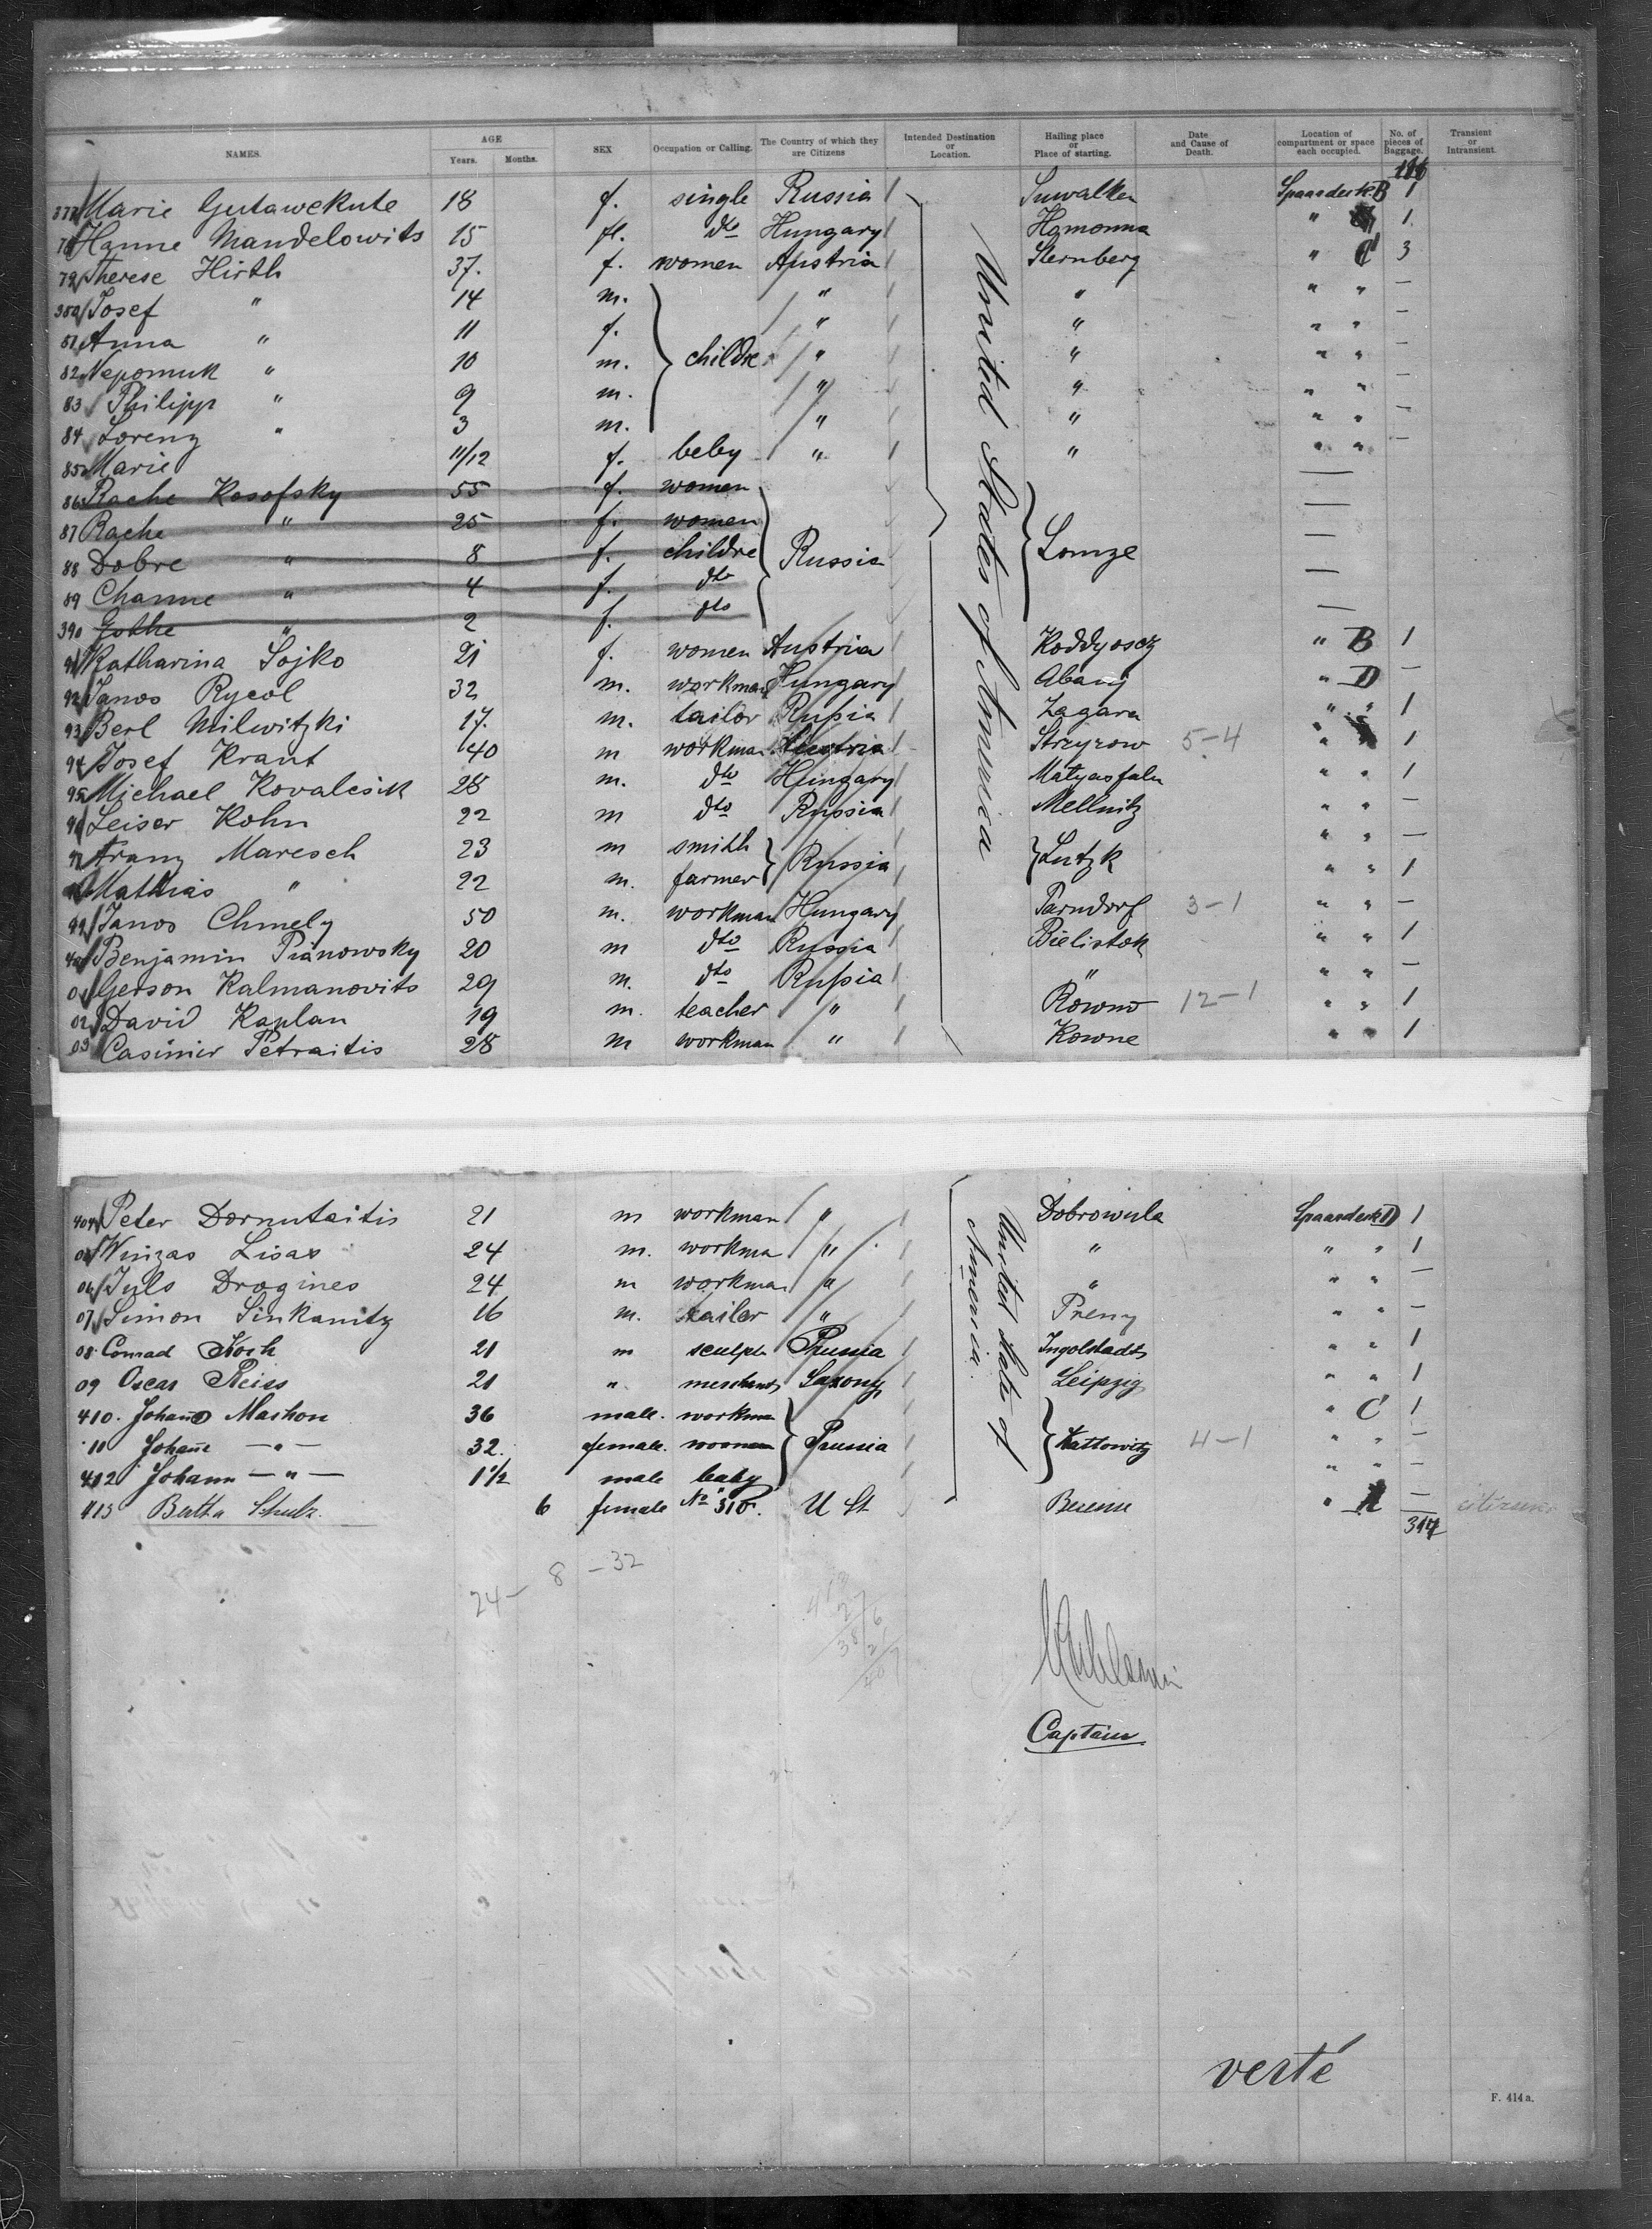 NAMES. AGE Years. Months. SEX Occupation or Calling. The Country of which they are Citizens Intended Destination or Location. Hailing place or Place of starting. Date and Cause of Death. Location of compartment or space each occupied. No. of pieces of Baggage. Transient or Intransient.
377 Marie Gutawekute 18 f. single Russia Suwalken Spaardeck B 1
78 Hanne Mandelowits 15 f. dto Hungary Homonna " 1.
79 Therese Hirth 37. f. women Austria Sternberg " C 3
380 Josef " 14 m. " " " " —
81 Anna " 11 f. " " " " —
82 Nepomuk " 10 m. childre " " " " —
83 Philipp " 9 m. " " " " —
84 Lorenz " 3 m. " " " " —
85 Marie 11/12 f. beby " " " " —
86 Rache Kosofsky 55 f. women —
87 Rache " 25 f. women —
88 Dobre " 8 f. childre Russia Lomze —
89 Channe " 4 f. dto —
390 Gothe " 2 f. dto —
United States of America
91 Katharina Sojko 21 f. women Austria Koddyoscz " B 1
92 Janos Rycol 32 m. workman Hungary Abauj " D —
93 Berl Milwitzki 17. m. tailor Russia Zagare " " 1
94 Josef Krant 40 m workman Austria Stryzow 5-4 " 1
95 Michael Kovalcsik 28 m. dto Hungary Matyasfalu " " 1
96 Leiser Kohn 22 m dto Russia Mellnitz " " —
97 Franz Maresch 23 m smith Russia Lutzk " " —
98 Mathias " 22 m. farmer " " 1
99 Janos Chmely 50 m. workman Hungary Parndorf 3-1 " " —
400 Benjamin Pianowsky 20 m dto Russia Bielistok " " 1
01 Gerson Kalmanovits 29 m. dto Russia " " " —
02 David Kaplan 19 m. teacher " Rowno 12-1 " " 1
03 Casimir Petraitis 28 m workman " Kowne " " 1
404 Peter Dornutaitis 21 m workman " Dobrowula Spaardeck D 1
05 Winzas Lisas 24 m. workma " " " " 1
06 Juls Dragines 24 m workma " " " " —
07 Simon Sinkanitz 16 m. tailer " Preny " " —
United States of America.
08 Conrad Koch 21 m sculpt Prussia Ingolstadt " " 1
09 Oscar Reiss 21 " merchant Saxony Leipzig " " 1
410. Johann Mashon 36 male. workman " C 1
11 Johane — " — 32. female. woman Prussia Kattowitz 4-1 " " —
412 Johann — " — 1 1/2 male baby " " —
413 Bertha Schulz. 6 female No 310. U St " —
317
24 — 8 — 32
Captain
verté
F. 414 a.